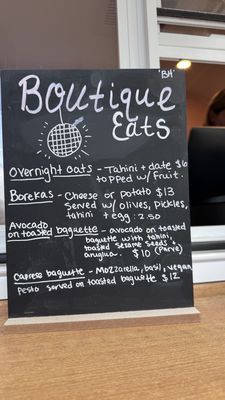 'BH'
Boutique
Eats
Overnight oats - Tahini + date $6
topped w/ fruit.
Borekas - Cheese or potato $13
Served w/ olives, pickles,
tahini + egg : 2.50
Avocado
on toasted baguette - avocado on toasted
baguette with tahini,
toasted sesame seeds +
arugula. $10 (Parve)
Caprese baguette - Mozzarella, basil, vegan
Pesto served on toasted baguette $12